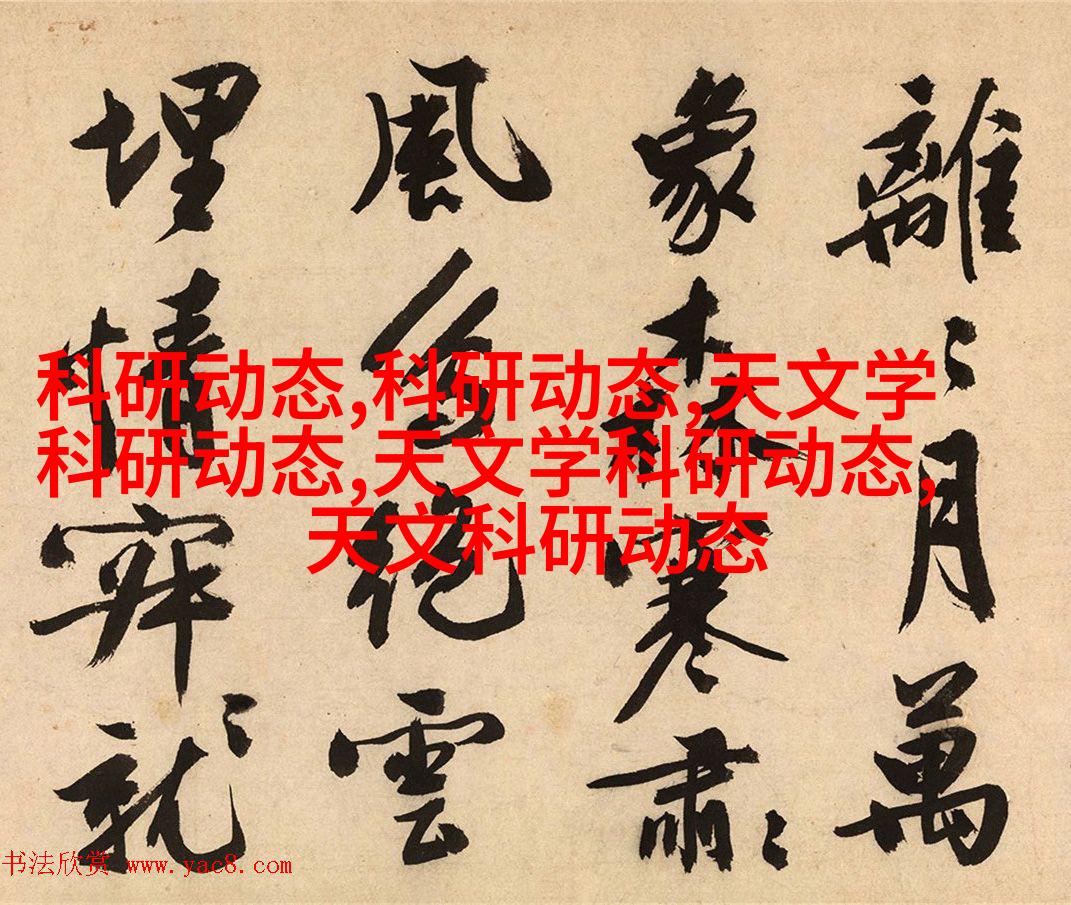 離〻月萬
象森寒肅〻
風雲
埋情就〻
科研动态,科研动态,天文学
科研动态,天文学科研动态,
天文科研动态
书法欣赏 www.yac8.com